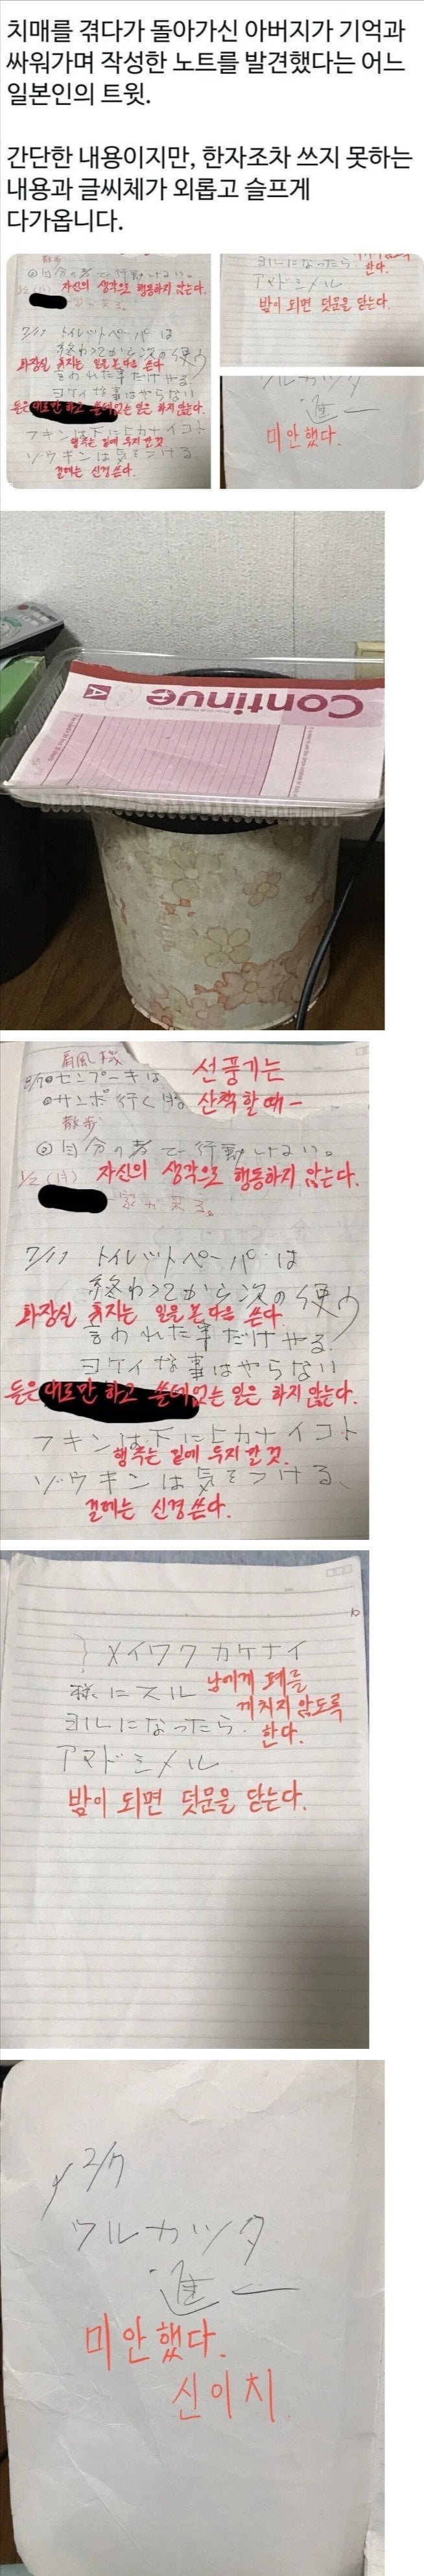 치매를 겪다가 돌아가신 아버지가 기억과
싸워가며 작성한 노트를 발견했다는 어느
일본인의 트윗.
간단한 내용이지만, 한자조차 쓰지 못하는
내용과 글씨체가 외롭고 슬프게
다가옵니다.
散歩
◎自分の考で行動しない。
자신의 생각으로 행동하지 않는다.
7/11 トイレットペーパーは
終わってから次の使う
화장실 휴지는 일을 본 다음 쓴다
言われた事だけやる
ヨケイな事はやらない
듣은 대로만 하고 쓸데없는 일은 하지 않는다.
フキンは下にヒカナイコト
행주는 밑에 두지 말 것
ゾウキンは気をつける
걸레는 신경 쓴다.
ヨルになったら.
한다.
アマドシメル
밤이 되면 뒷문을 닫는다.
ワルカッタ
進一
미안했다.
Continue
A
扇風機
8/7 ◎センプーキは
선풍기는
◎サンポ行く時
산책할 때-
散歩
◎自分の考で行動しない。
1/2 (月)
자신의 생각으로 행동하지 않는다.
7/11 トイレットペーパーは
終わってから次の使う
화장실 휴지는 일을 본 다음 쓴다.
言われた事だけやる.
ヨケイな事はやらない
듣은 대로만 하고 쓸데없는 일은 하지 않는다.
フキンは下にヒカナイコト
행주는 밑에 두지 말 것.
ゾウキンは気をつける、
걸레는 신경 쓴다.
メイワクカケナイ
様にスル
남에게 폐를
끼치지 않도록
ヨルになったら.
한다.
アマドシメル.
밤이 되면 뒷문을 닫는다.
2/7
ワルカッタ
進一
미안했다.
신이치.